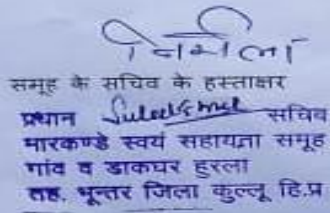 निर्मला
समूह के सचिव के हस्ताक्षर
प्रधान सचिव
मारकण्डे स्वयं सहायता समूह
गांव व डाकघर हुरला
तह. भून्तर जिला कुल्लू हि.प्र